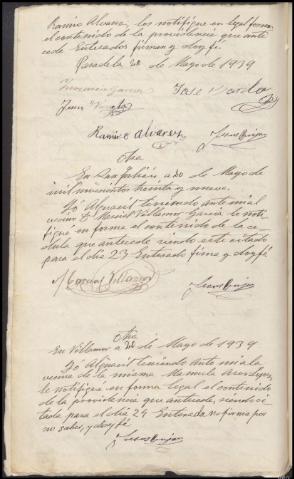 Ramiro Alvarez, los notifiqué en legal forma
el contenido de la providencia que ante
cede Enterados firman y doy fé.
Paradela 20 de Mayo de 1939
Francisco Garcia Jose Varela
Jesus Varela
Ramiro alvarez
Otra
En San Julián, a 20 de Mayo de
mil novecientos treinta y nueve.
Yó Alguacil teniendo ante mi al
vecino D. Marcial Villamor Garcia le noti
fiqué en forma el contenido de la cé
dula que antecede siendo este citado
para el día 23 Enterado firma y doy fé
Marcial Villamor
Otra
En Villamor a 20 de Mayo de 1939
Yó Alguacil teniendo ante mi a la
vecina de la misma Manuela
le notifiqué en forma legal el contenido
de la providencia que antecede, siendo ci
tada para el día 24 Enterada no firma por
no saber, y doy fé